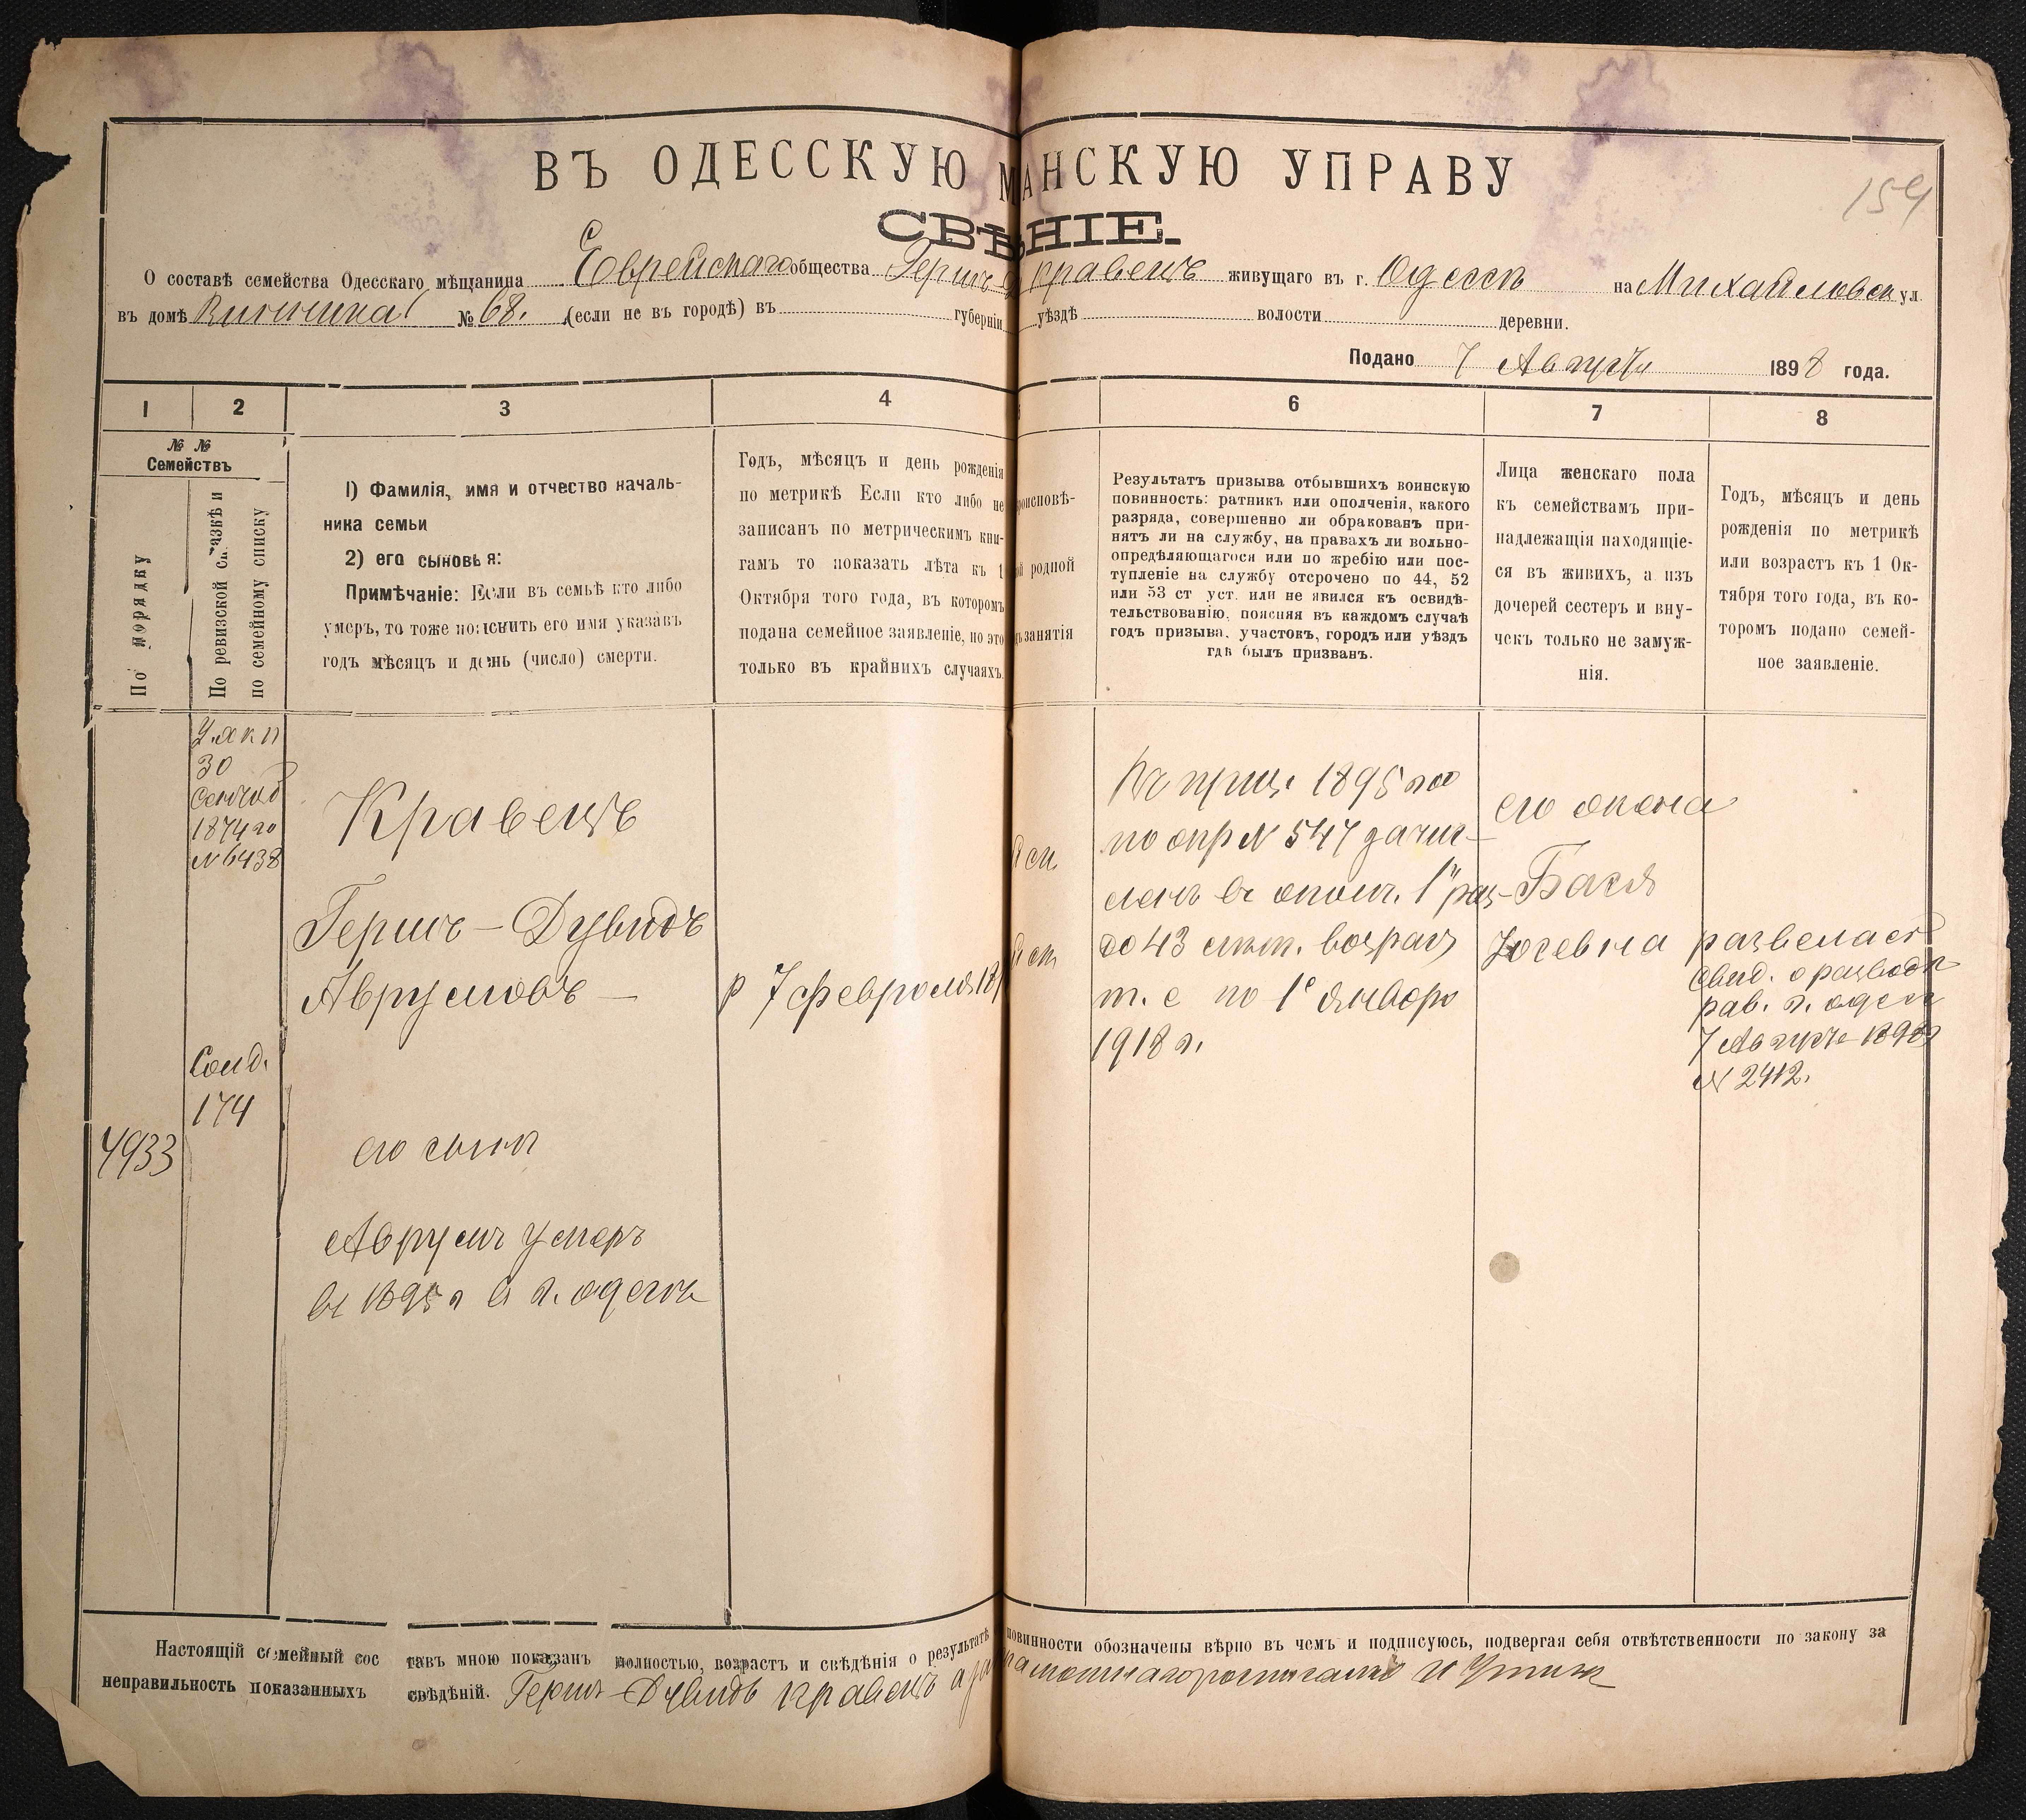 ВЪ ОДЕССКУЮ М АНСКУЮ УПРАВУ
154
СВѢ НІЕ.
О составѣ семейства Одесскаго мѣщанина Еврейскаго общества Гершъ Кравецъ живущаго въ г. Одессѣ на Михайловск ул.
въ домѣ № 68. (если не въ городѣ) въ губерніи уѣздѣ волости деревни.
Подано 7 Августа 1898 года.
1 2 3 4 6 7 8
№ № Семействъ
По порядку
По ревизской сказкѣ и по семейному списку
1) Фамилія, имя и отчество началь-
ника семьи
2) его сыновья:
Примѣчаніе: Если въ семьѣ кто либо
умеръ, то тоже пояснить его имя указавъ
годъ мѣсяцъ и день (число) смерти.
Годъ, мѣсяцъ и день рожденія
по метрикѣ Если кто либо не
записанъ по метрическимъ кни-
гамъ то показать лѣта къ 1
Октября того года, въ которомъ
подана семейное заявленіе, но это
только въ крайнихъ случаяхъ.
роисповѣ-
родной
занятія
Результатъ призыва отбывшихъ воинскую
повинность: ратникъ или ополченія, какого
разряда, совершенно ли обракованъ при-
нятъ ли на службу, на правахъ ли вольно-
опредѣляющагося или по жребію или пос-
тупленіе на службу отсрочено по 44, 52
или 53 ст уст. или не явился къ освидѣ-
тельствованію, поясняя въ каждомъ случаѣ
годъ призыва, участокъ, городъ или уѣздъ
гдѣ былъ призванъ.
Лица женскаго пола
къ семействамъ при-
надлежащія находящіе-
ся въ живихъ, а изъ
дочерей сестеръ и вну-
чекъ только не замуж-
нія.
Годъ, мѣсяцъ и день
рожденія по метрикѣ
или возрастъ къ 1 Ок-
тября того года, въ ко-
торомъ подано семей-
ное заявленіе.
30
1874 го
№ 6438
Солд.
174
4933
Кравецъ
Гершъ-Дувидъ
Аврумовъ —
его сынъ
Аврумъ умеръ
въ 1895 г въ г. Одессѣ
р 7 февраля 18
Въ приз. 1895 год
по опр № 547 зачис-
ленъ въ ополч. 1 раз
до 43 лѣт. возраст
т. е по 1е Января
1918 г.
его жена
Бася
развелась
Свид. о разводѣ
рав. г. Одессы
7 Августа 1898
№ 2412.
Настоящій семейный составъ мною показанъ полностью, возрастъ и свѣдѣнія о результатѣ повинности обозначены вѣрно въ чемъ и подписуюсь, подвергая себя отвѣтственности по закону за
неправильность показанныхъ свѣдѣній. Гершъ-Дувидъ Кравецъ